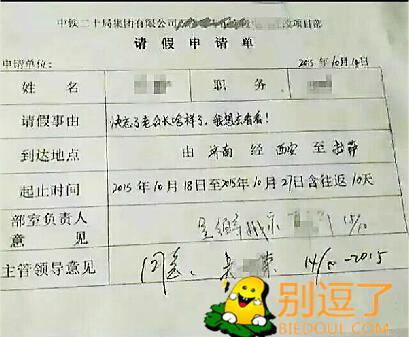 中铁二十局集团有限公司 项目部
请假申请单
申请单位： 2015年10月14日
姓名 职务
请假事由 决忘了老公长啥样了，我想去看看！
到达地点 由 济南 经 西安 至 拉萨
起止时间 2015年10月18日至2015年10月27日含往返10天
部室负责人意见 呈领导批示
主管领导意见 同意。 14/10-2015
别逗了
BIEDOUL.COM